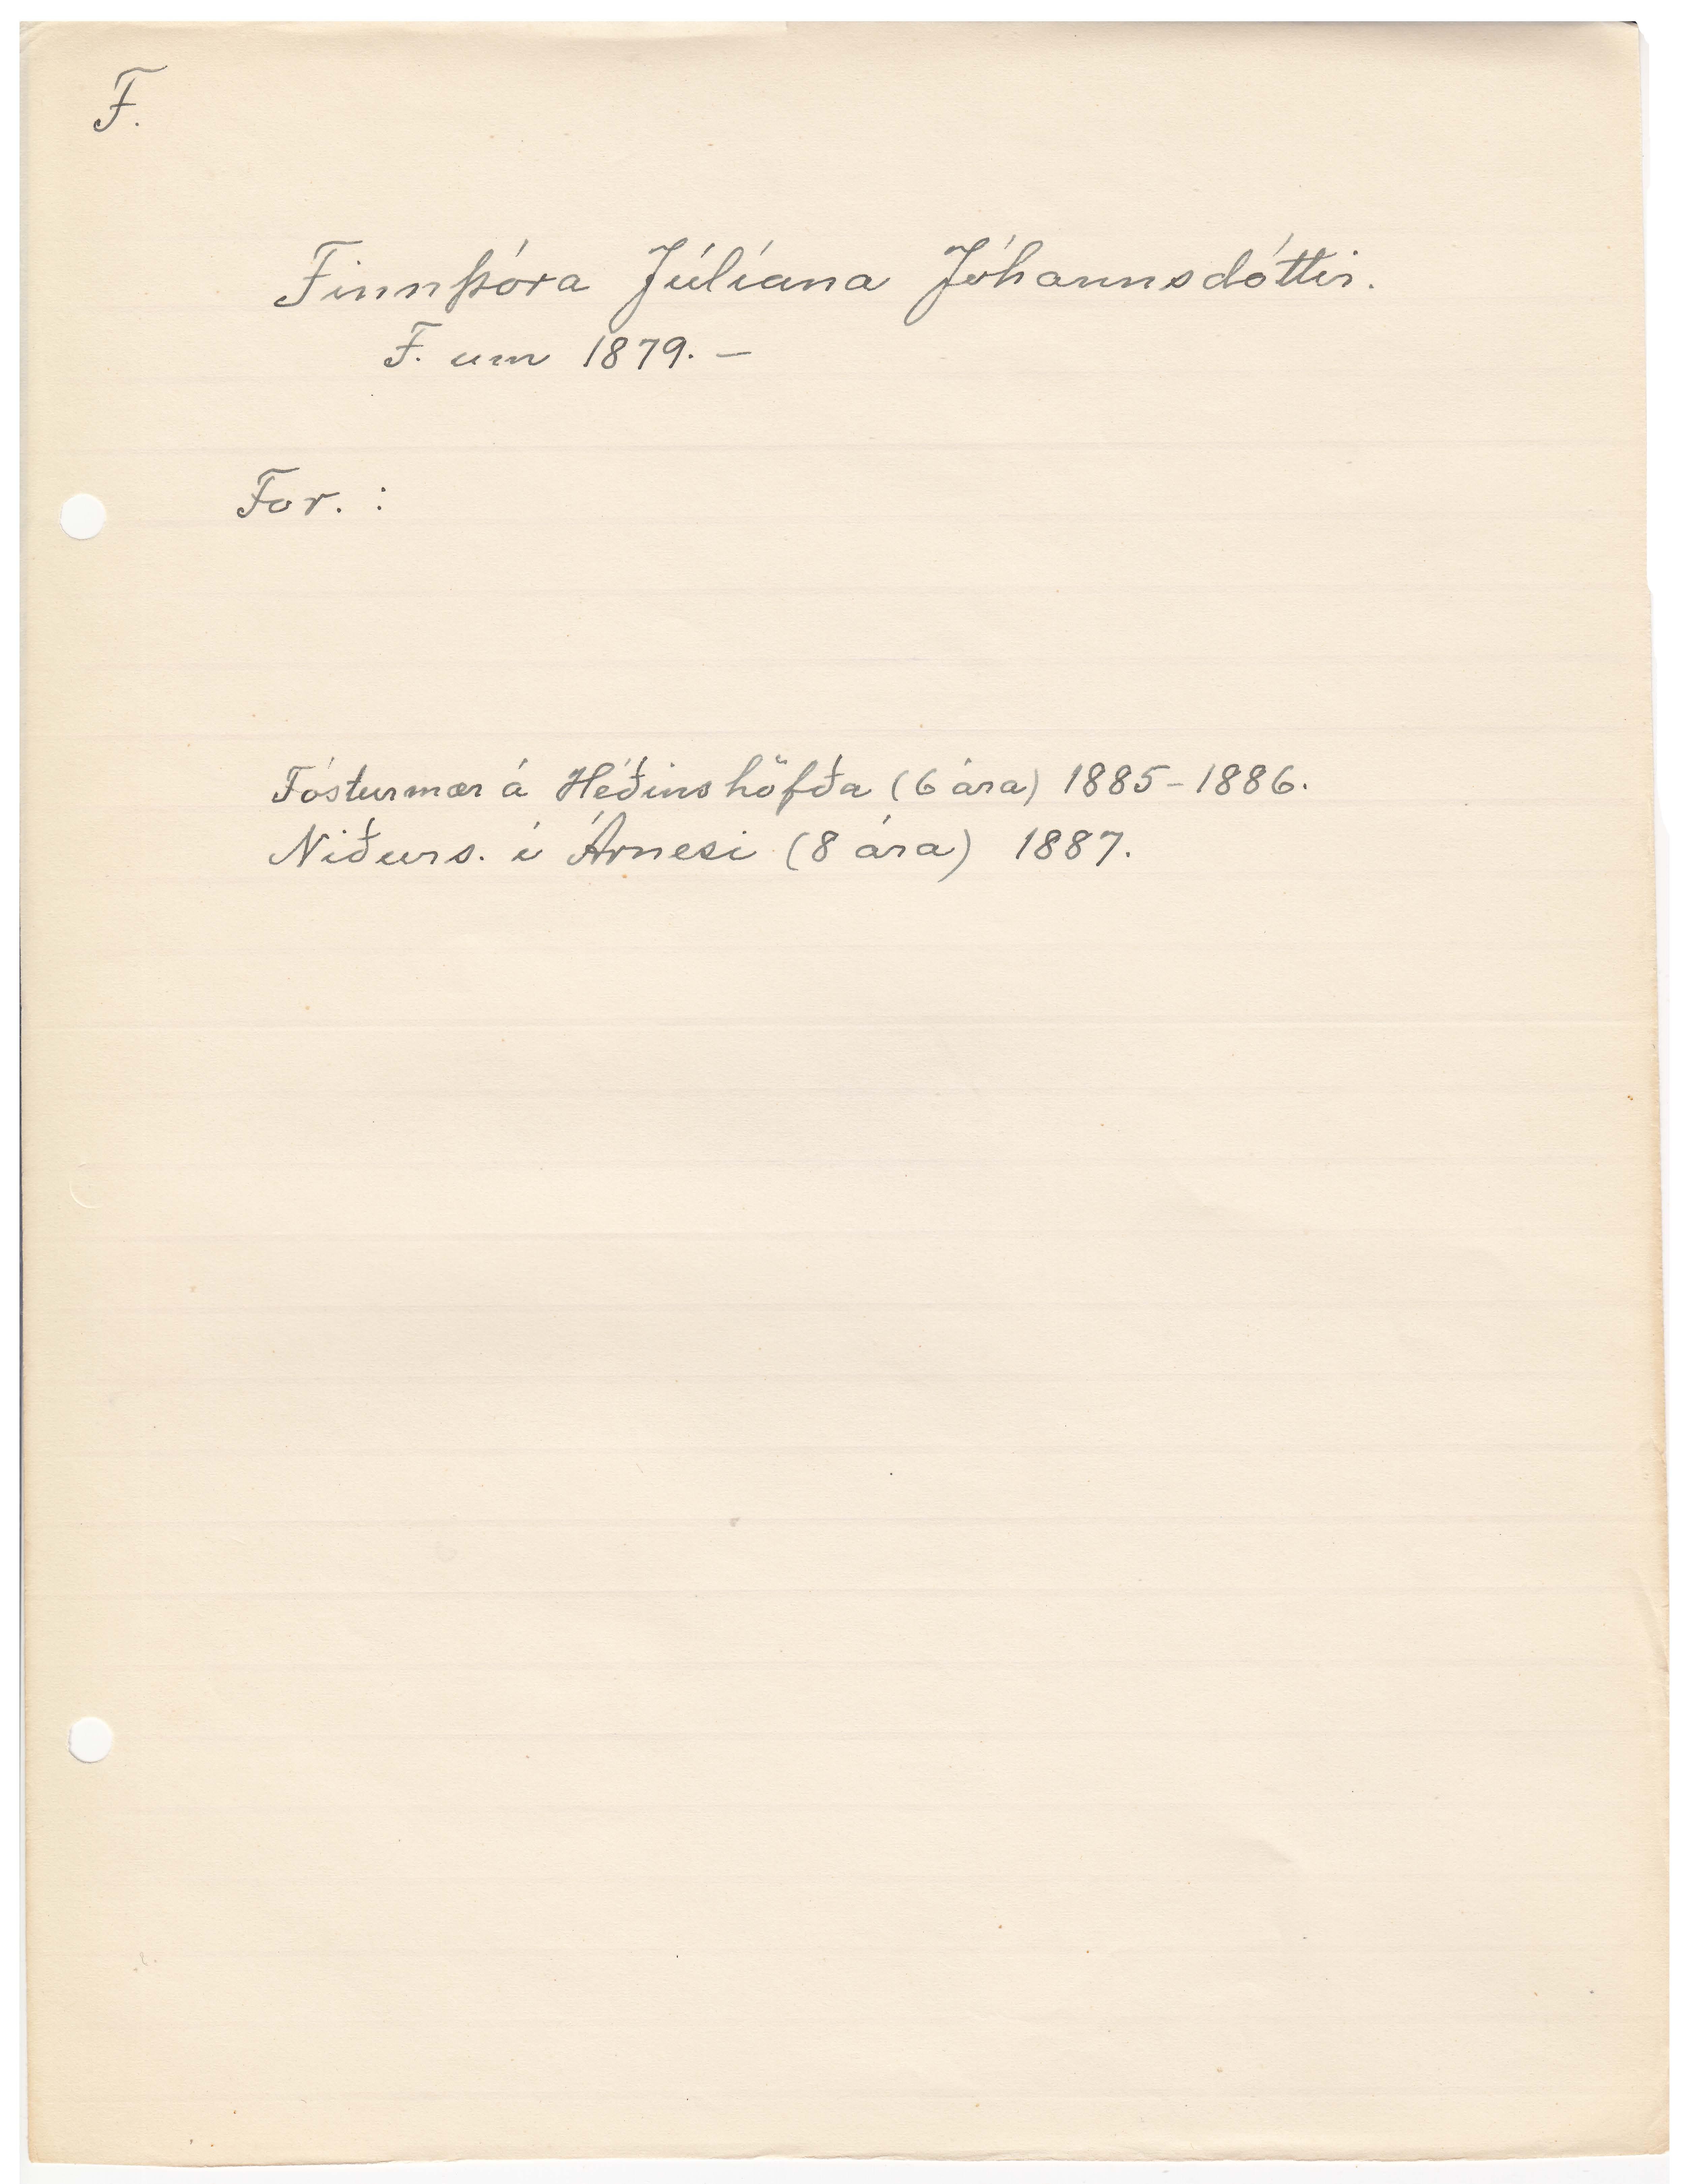 F.
Finnþóra Júlíana Jóhannsdóttir.
F. um 1879. –
For. :
Fósturmær á Héðinshöfða (6 ára) 1885-1886.
Niðurs. í Árnesi (8 ára) 1887.